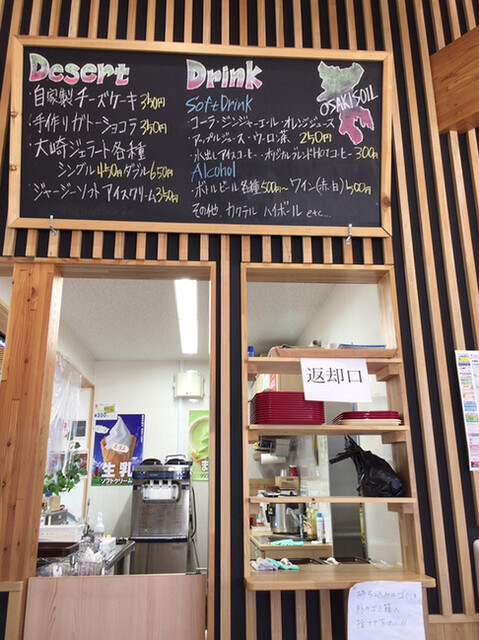 Desert
・自家製チーズケーキ 350円
・手作りガトーショコラ 350円
・大崎ジェラート各種
シングル450円 ダブル650円
・ジャージーソフトアイスクリーム350円
Drink
Soft Drink
コーラ・ジンジャーエール・オレンジジュース
・アップルジュース・ウーロン茶 250円
・水出しアイスコーヒー・オリジナルブレンドHOTコーヒー 300円
Alcohol
・ボトルビール各種500円〜 ワイン(赤、白)400円
その他、カクテル ハイボール etc...
OSAKI SOIL
返却口
生乳
ソフトクリーム